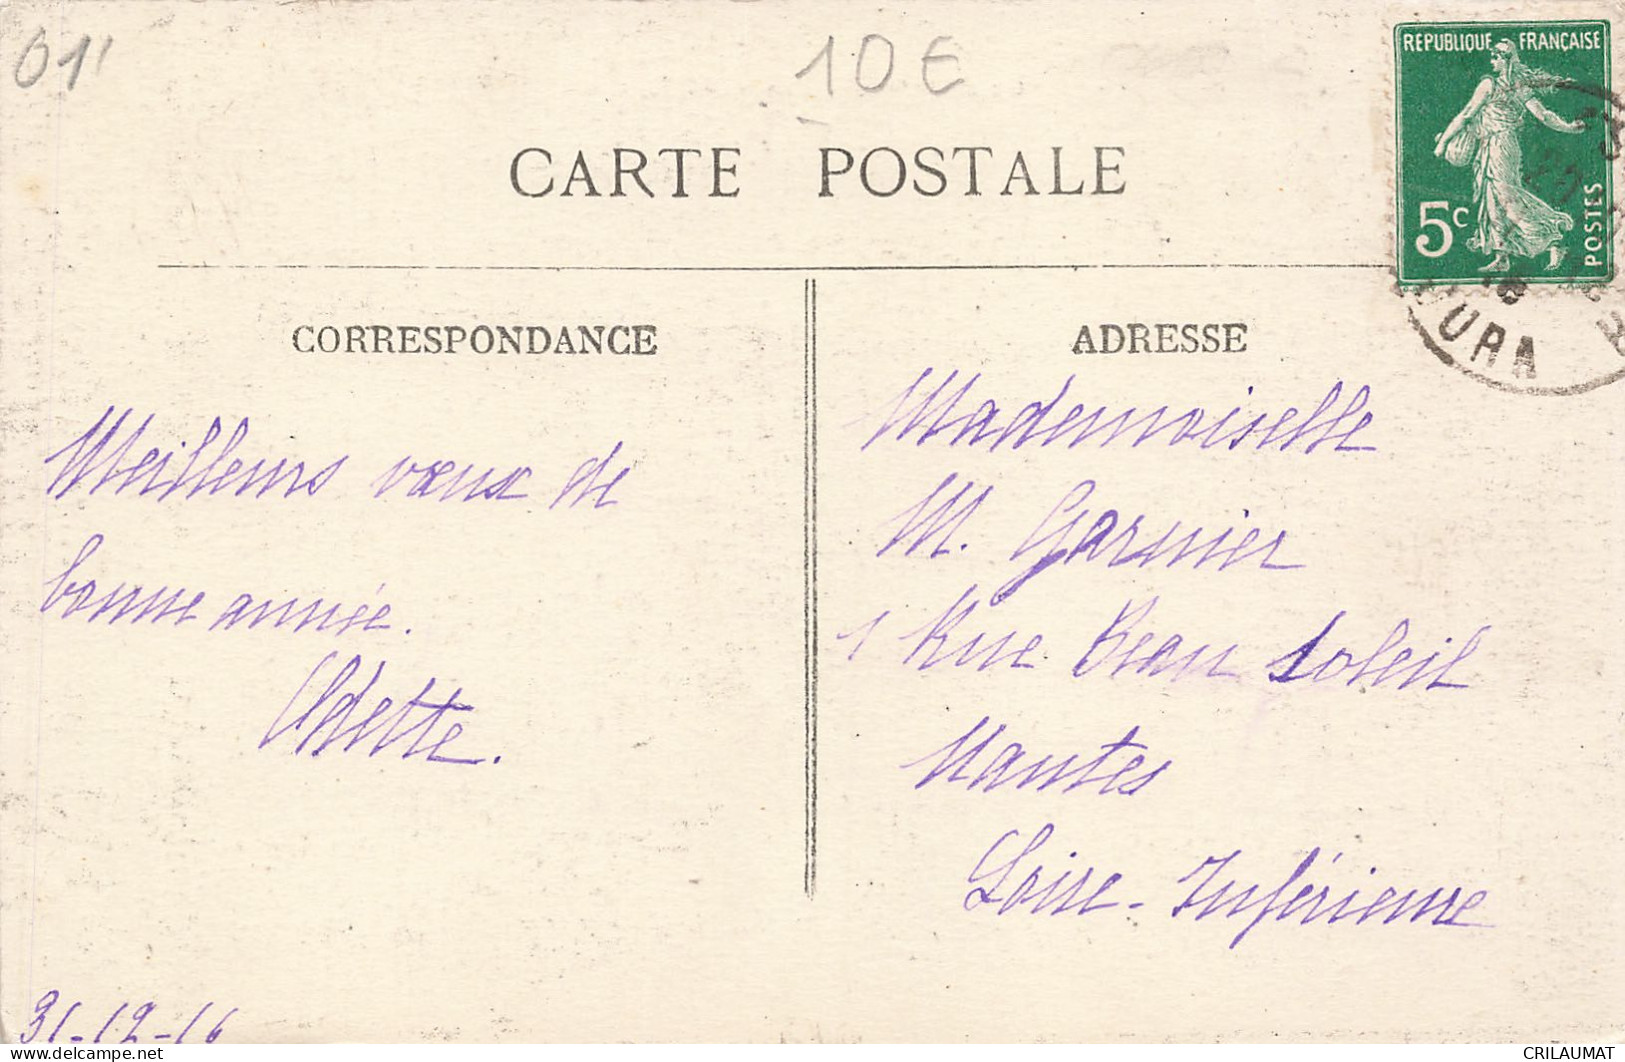 01
10€
REPUBLIQUE FRANÇAISE
5c
POSTES
CARTE POSTALE
JURA
CORRESPONDANCE
ADRESSE
Meilleurs vœux de
bonne année.
Odette.
31-12-16
Mademoiselle
M. Garnier
1 Rue Beau Soleil
Nantes
Loire-Inférieure
delcampe.net
CRILAUMAT